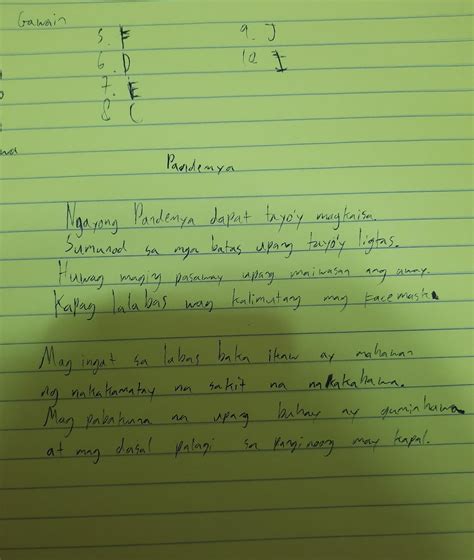 Gawain
5. F
6. D
7. E
8 C
9. J
10 I
wa
Pandemya
Ngayong Pandemya dapat tayo'y magkaisa.
Sumunod sa mga batas upang tayo'y ligtas.
Huwag maging pasaway upang maiwasan ang away.
Kapag lalabas wag kalimutang mag facemask.
Mag ingat sa labas baka ikaw ay mahawan
ng nakakamatay na sakit na nakakahawa.
Mag pabakuna na upang buhay ay guminhawa
at mag dasal palagi sa panginoong may kapal.